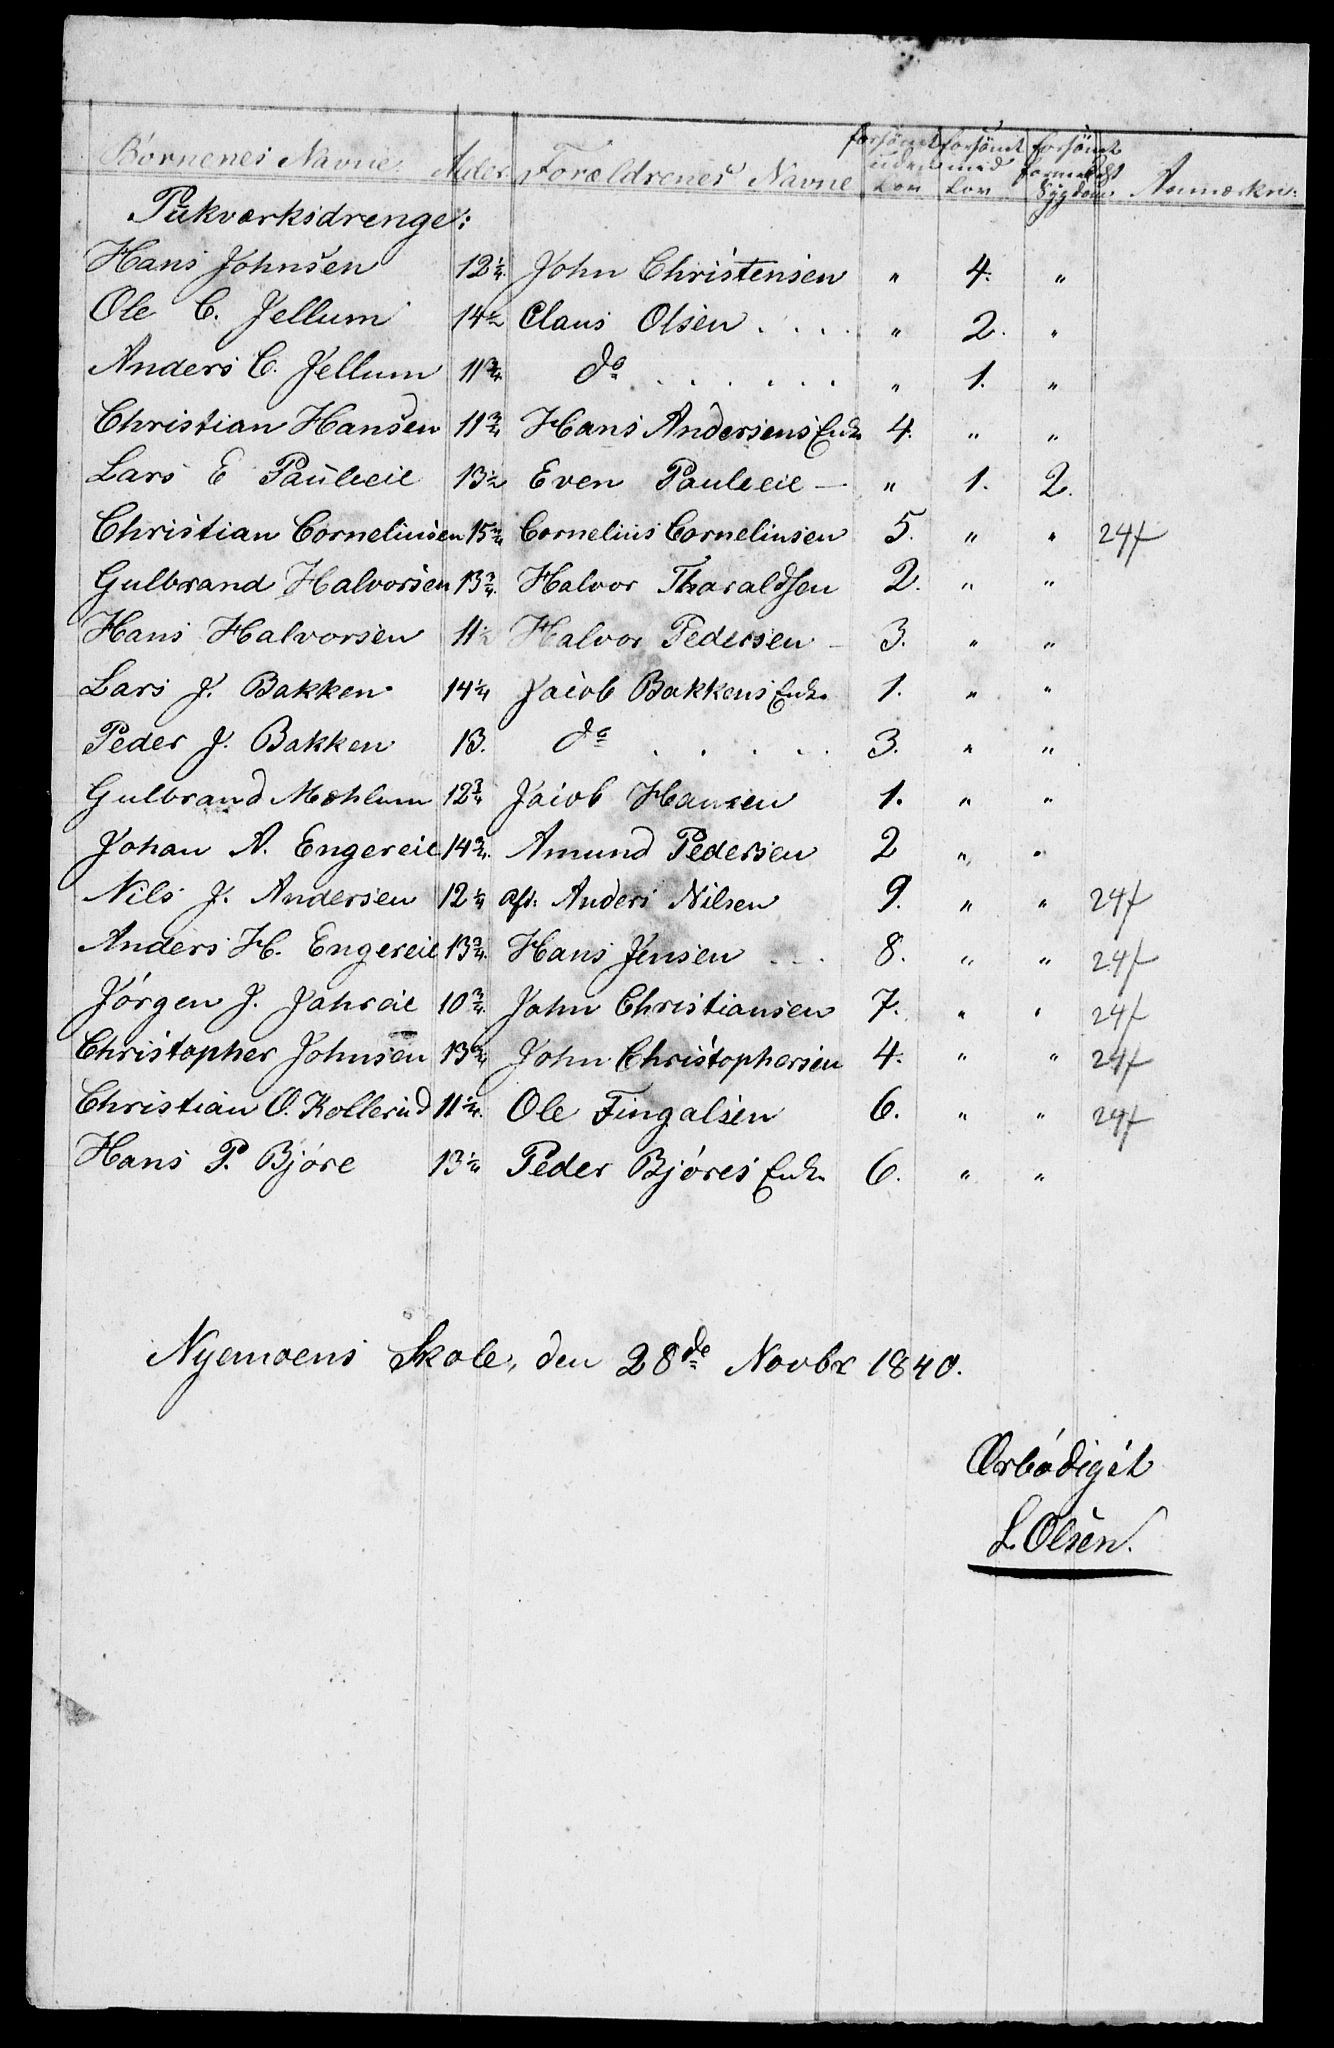 Börnenes Navne Alder. Forældrenes Navne forsömt uden Lov forsömt med Lov forsömt formedelst Sygdom Anmærkn:
Pukværksdrenge:
Hans Johnsen 12¼. John Christensen " 4. "
Ole C. Jellum 14½ Claus Olsen . . . . " 2. "
Anders C. Jellum 11¾ do . . . . . . " 1. "
Christian Hansen 11¾ Hans Andersens Enke 4. " "
Lars E Pauleeie 13½ Even Pauleeie — " 1. 2.
Christian Corneliusen 15¾ Cornelius Corneliusen 5. " " 24
Gulbrand Halvorsen 13¾. Halvor Tharaldsen 2. " "
Hans Halvorsen 11½ Halvor Pedersen – 3. " "
Lars J. Bakken 14¼ Jacob Bakkens Enke 1. " "
Peder J. Bakken 13. do . . . . 3. " "
Gulbrand Mæhlum 12¾ Jacob Hansen 1. " "
Johan A. Engereie 14¾. Amund Pedersen 2 " "
Nils J. Andersen 12¼ afd. Anders Nilsen 9. " " 24
Anders H. Engereie 13¾. Hans Jensen . . . 8. " " 24
Jörgen J. Jahreie 10¾. John Christiansen 7. " " 24
Christopher Johnsen 13¾ John Christophersen 4. " " 24
Christian O. Kollerud 11¼. Ole Fingalsen 6. " " 24
Hans P. Björe 13¼ Peder Björes Enke 6. " "
Nyemoens Skole, den 28de Novbr 1840.
Ærbödigst
L. Olsen.